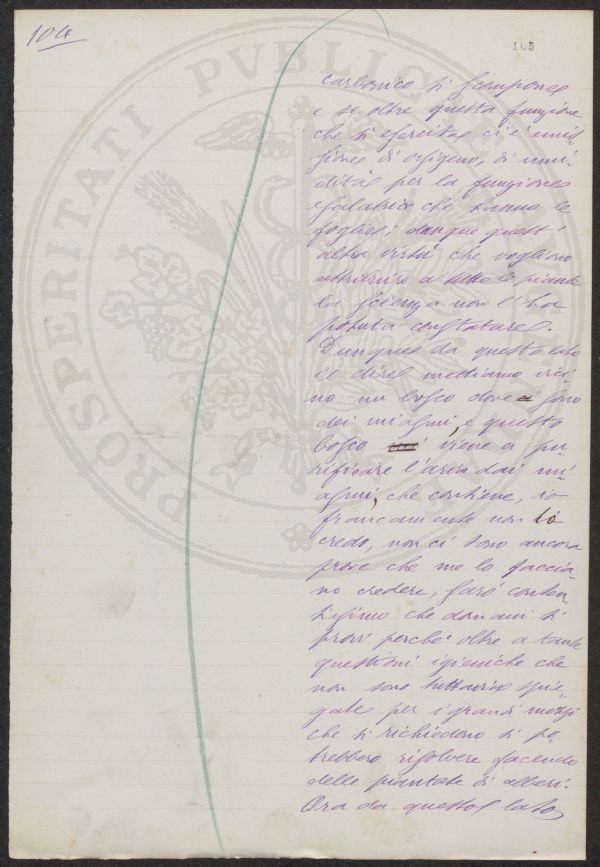 104
105
PROSPERITATI PUBLICAE
carbonico si scompone
e se oltre questa funzione
che si esercita ci è emis-
sione di ossigeno, di umi-
dità per la funzione
esalatrice che hanno le
foglie; dunque quest'
altra virtù che vogliono
attribuire a tutte le piante
la scienza non l'ha
potuta constatare.
Dunque da questo lato
il dire mettiamo vici-
no un bosco dove ci sono
dei miasmi, e questo
bosco viene a pu-
rificare l'aria dai mi-
asmi, che contiene, io
francamente non lo
credo, non ci sono ancora
prove che me lo faccia-
no credere, sarò conten-
tissimo che domani si
provi perché oltre a tante
questioni igieniche che
non sono tuttavia spie-
gate per i grandi mezzi
che si richiedono si po-
trebbero risolvere facendo
delle piantate di alberi.
Ora da questo lato